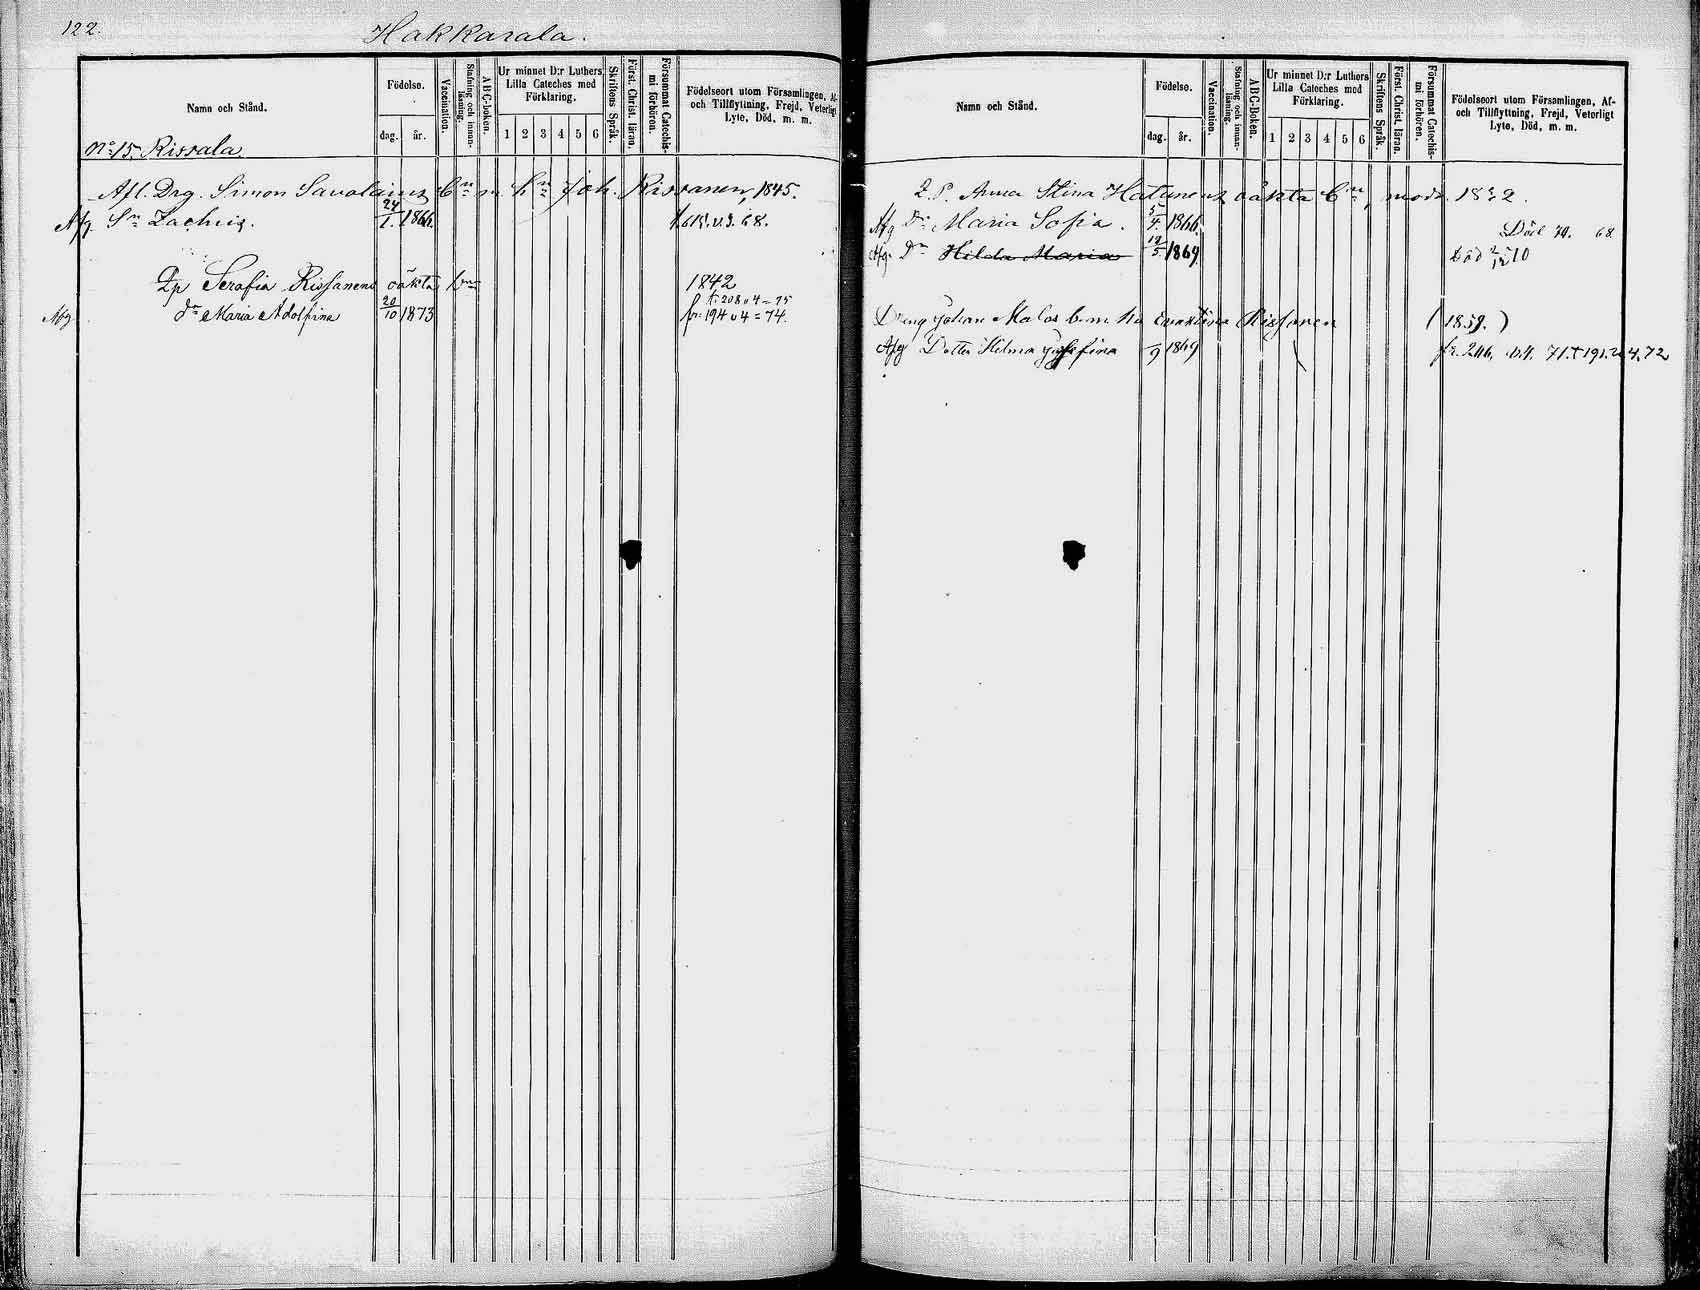 122.
Hakkarala.
Namn och Stånd.
Födelse.
dag. år.
Vaccination.
Stafning och innan-läsning.
ABC-boken.
Ur minnet D:r Luthers Lilla Cateches med Förklaring.
1 2 3 4 5 6
Skriftens Språk.
Först. Christ. läran.
Försummat Catechis-mi förhören.
Födelseort utom Församlingen, Af-
och Tillflyttning, Frejd, Veterligt
Lyte, Död, m. m.
No 15. Rissala.
Afl. Drg. Simon Savolainens Bn m. hu Joh. Rissanen, 1845.
Afg. Sn Zachris. 24/1. 1866. 68.
Qp Serafia Rissanens oäkta Bn 1842
t. 208 u 4 = 75
Afg dr Maria Adolfina 20/10 1873 fr. 194 u 4 = 74.
Namn och Stånd.
Födelse.
dag. år.
Vaccination.
Stafning och innan-läsning.
ABC-boken.
Ur minnet D:r Luthers Lilla Cateches med Förklaring.
1 2 3 4 5 6
Skriftens Språk.
Först. Christ. läran.
Försummat Catechis-mi förhören.
Födelseort utom Församlingen, Af-
och Tillflyttning, Frejd, Veterligt
Lyte, Död, m. m.
Q. P. Anna Stina Hatunens oäkta Bn, mod.
Afg Dr Maria Sofia. 5/4. 1866. Död 68
Afg. Dr Hilda Maria 12/5 1869. Död
Dräng Johan Malos b. m. hu Rissanen (1859.)
Afg Dotter Hilma Josefina /9 1869 fr. 246. 71. t 191. u 4. 72